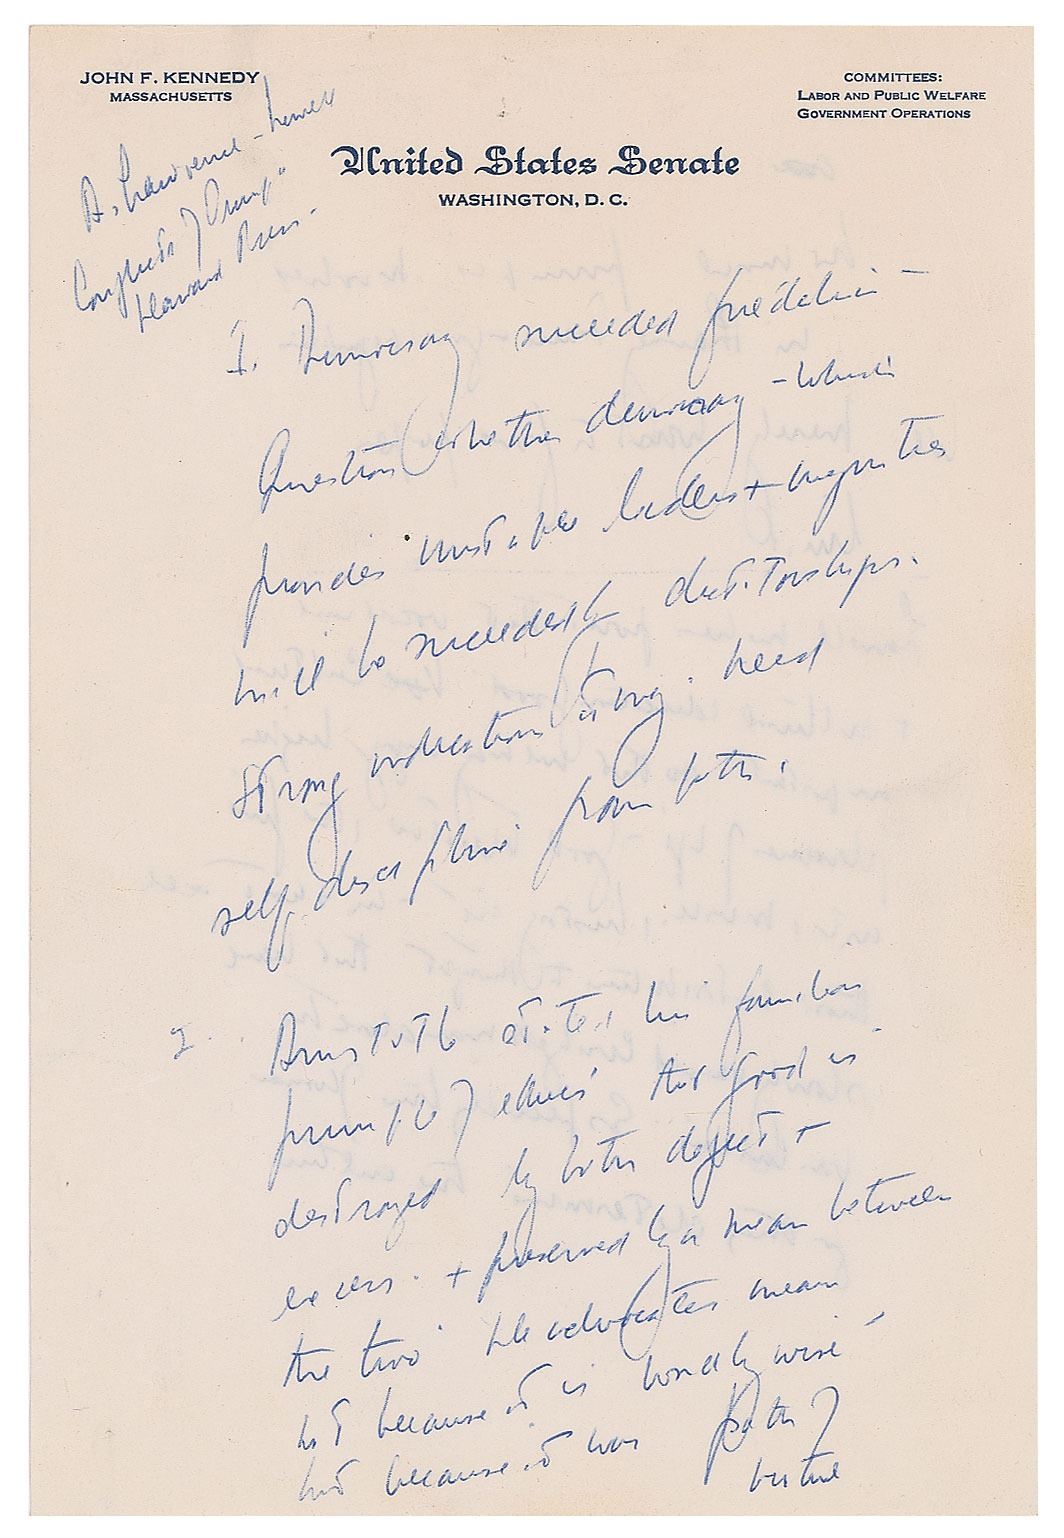 JOHN F. KENNEDY
MASSACHUSETTS
COMMITTEES:
LABOR AND PUBLIC WELFARE
GOVERNMENT OPERATIONS
United States Senate
WASHINGTON, D. C.
A. Lawrence Lowell
Conflicts of
Harvard Press.
1. Democracy succeeded
Question whether democracy - which
provides must a few leaders + majorities
will be succeeded by dictatorships.
Strong indications strong. need
self discipline from both.
2. Aristotle states his familiar
principle of ethics that good is
destroyed by both defect +
excess. + preserved by a mean between
the two. He advocates mean
not because it is worldly wise
but because it was path of
virtue